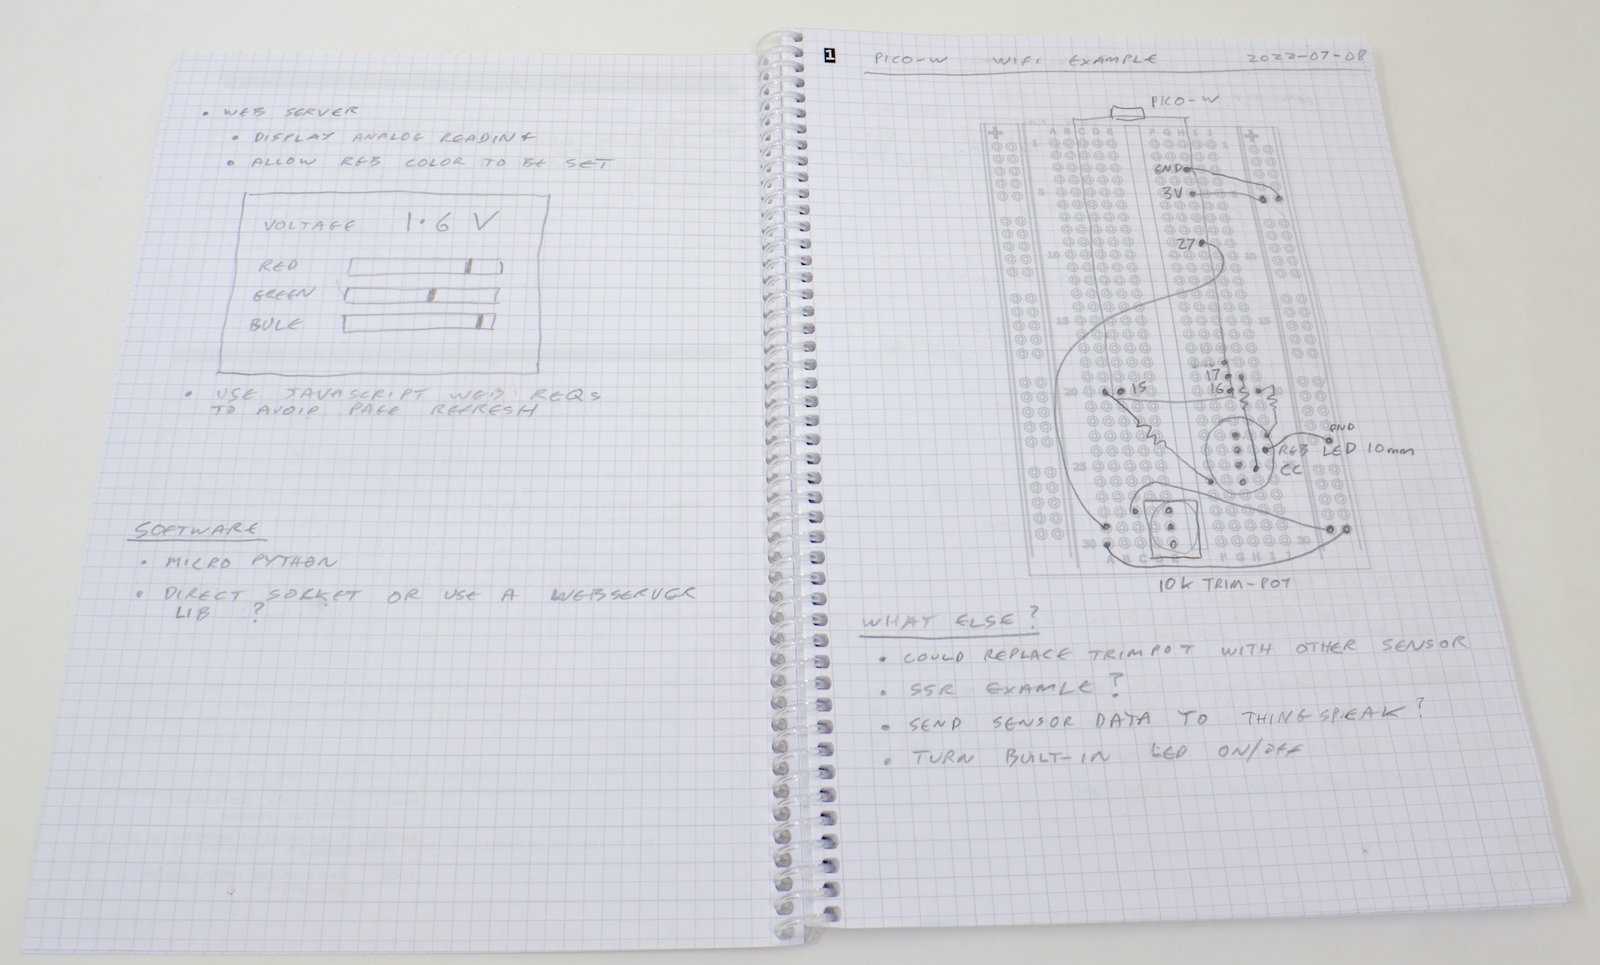 • WEB SERVER
• DISPLAY ANALOG READING
• ALLOW RGB COLOR TO BE SET
VOLTAGE 1.6 V
RED
GREEN
BULE
• USE JAVASCRIPT WEB REQS
TO AVOID PAGE REFRESH
SOFTWARE
• MICRO PYTHON
• DIRECT SOCKET OR USE A WEBSERVER
LIB ?
1
PICO-W WIFI EXAMPLE 2022-07-08
PICO-W
+ A B C D E F G H I J +
1 1
GND
3V
5 5
27
10 10
15 15
17
20 15 16
GND
RGB LED 10mm
CC
25
30 30
A B C D E F G H I J
10K TRIM-POT
WHAT ELSE?
• COULD REPLACE TRIMPOT WITH OTHER SENSOR
• SSR EXAMLE?
• SEND SENSOR DATA TO THINGSPEAK?
• TURN BUILT-IN LED ON/OFF